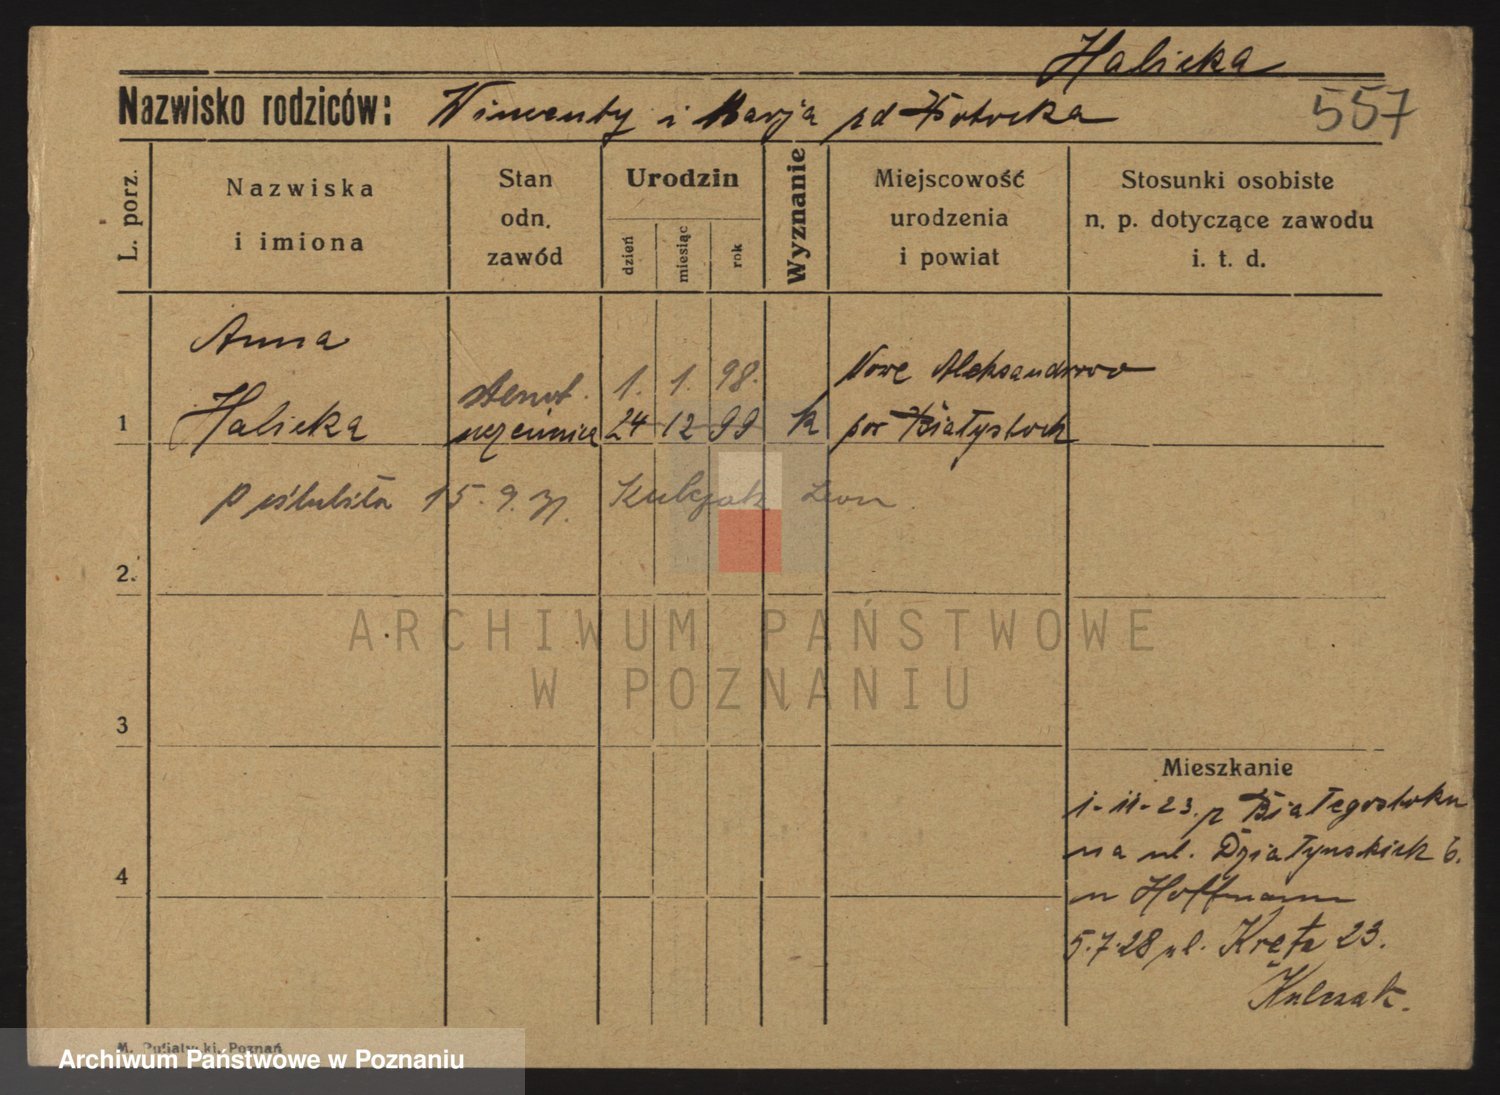 Halicka
Nazwisko rodziców: Wincenty i Marja z d Kotocka
557
L. porz.
Nazwiska
i imiona
Stan
odn.
zawód
Urodzin
dzień
miesiąc
rok
Wyznanie
Miejscowość
urodzenia
i powiat
Stosunki osobiste
n. p. dotyczące zawodu
i. t. d.
1
Anna
Halicka
uczennica
1. 1. 98.
24 12 99
k
Nowe Aleksandrowo
pow Białystock
poślubiła 15. 9. 31. Kulczak Leon
2.
3
4
Mieszkanie
1-11-23. z Białegostoku
na ul. Działyńskich 6.
u Hoffmann
5.7.28 ul. Kręta 23.
Kulczak.
ARCHIWUM PAŃSTWOWE
W POZNANIU
Poznań
Archiwum Państwowe w Poznaniu